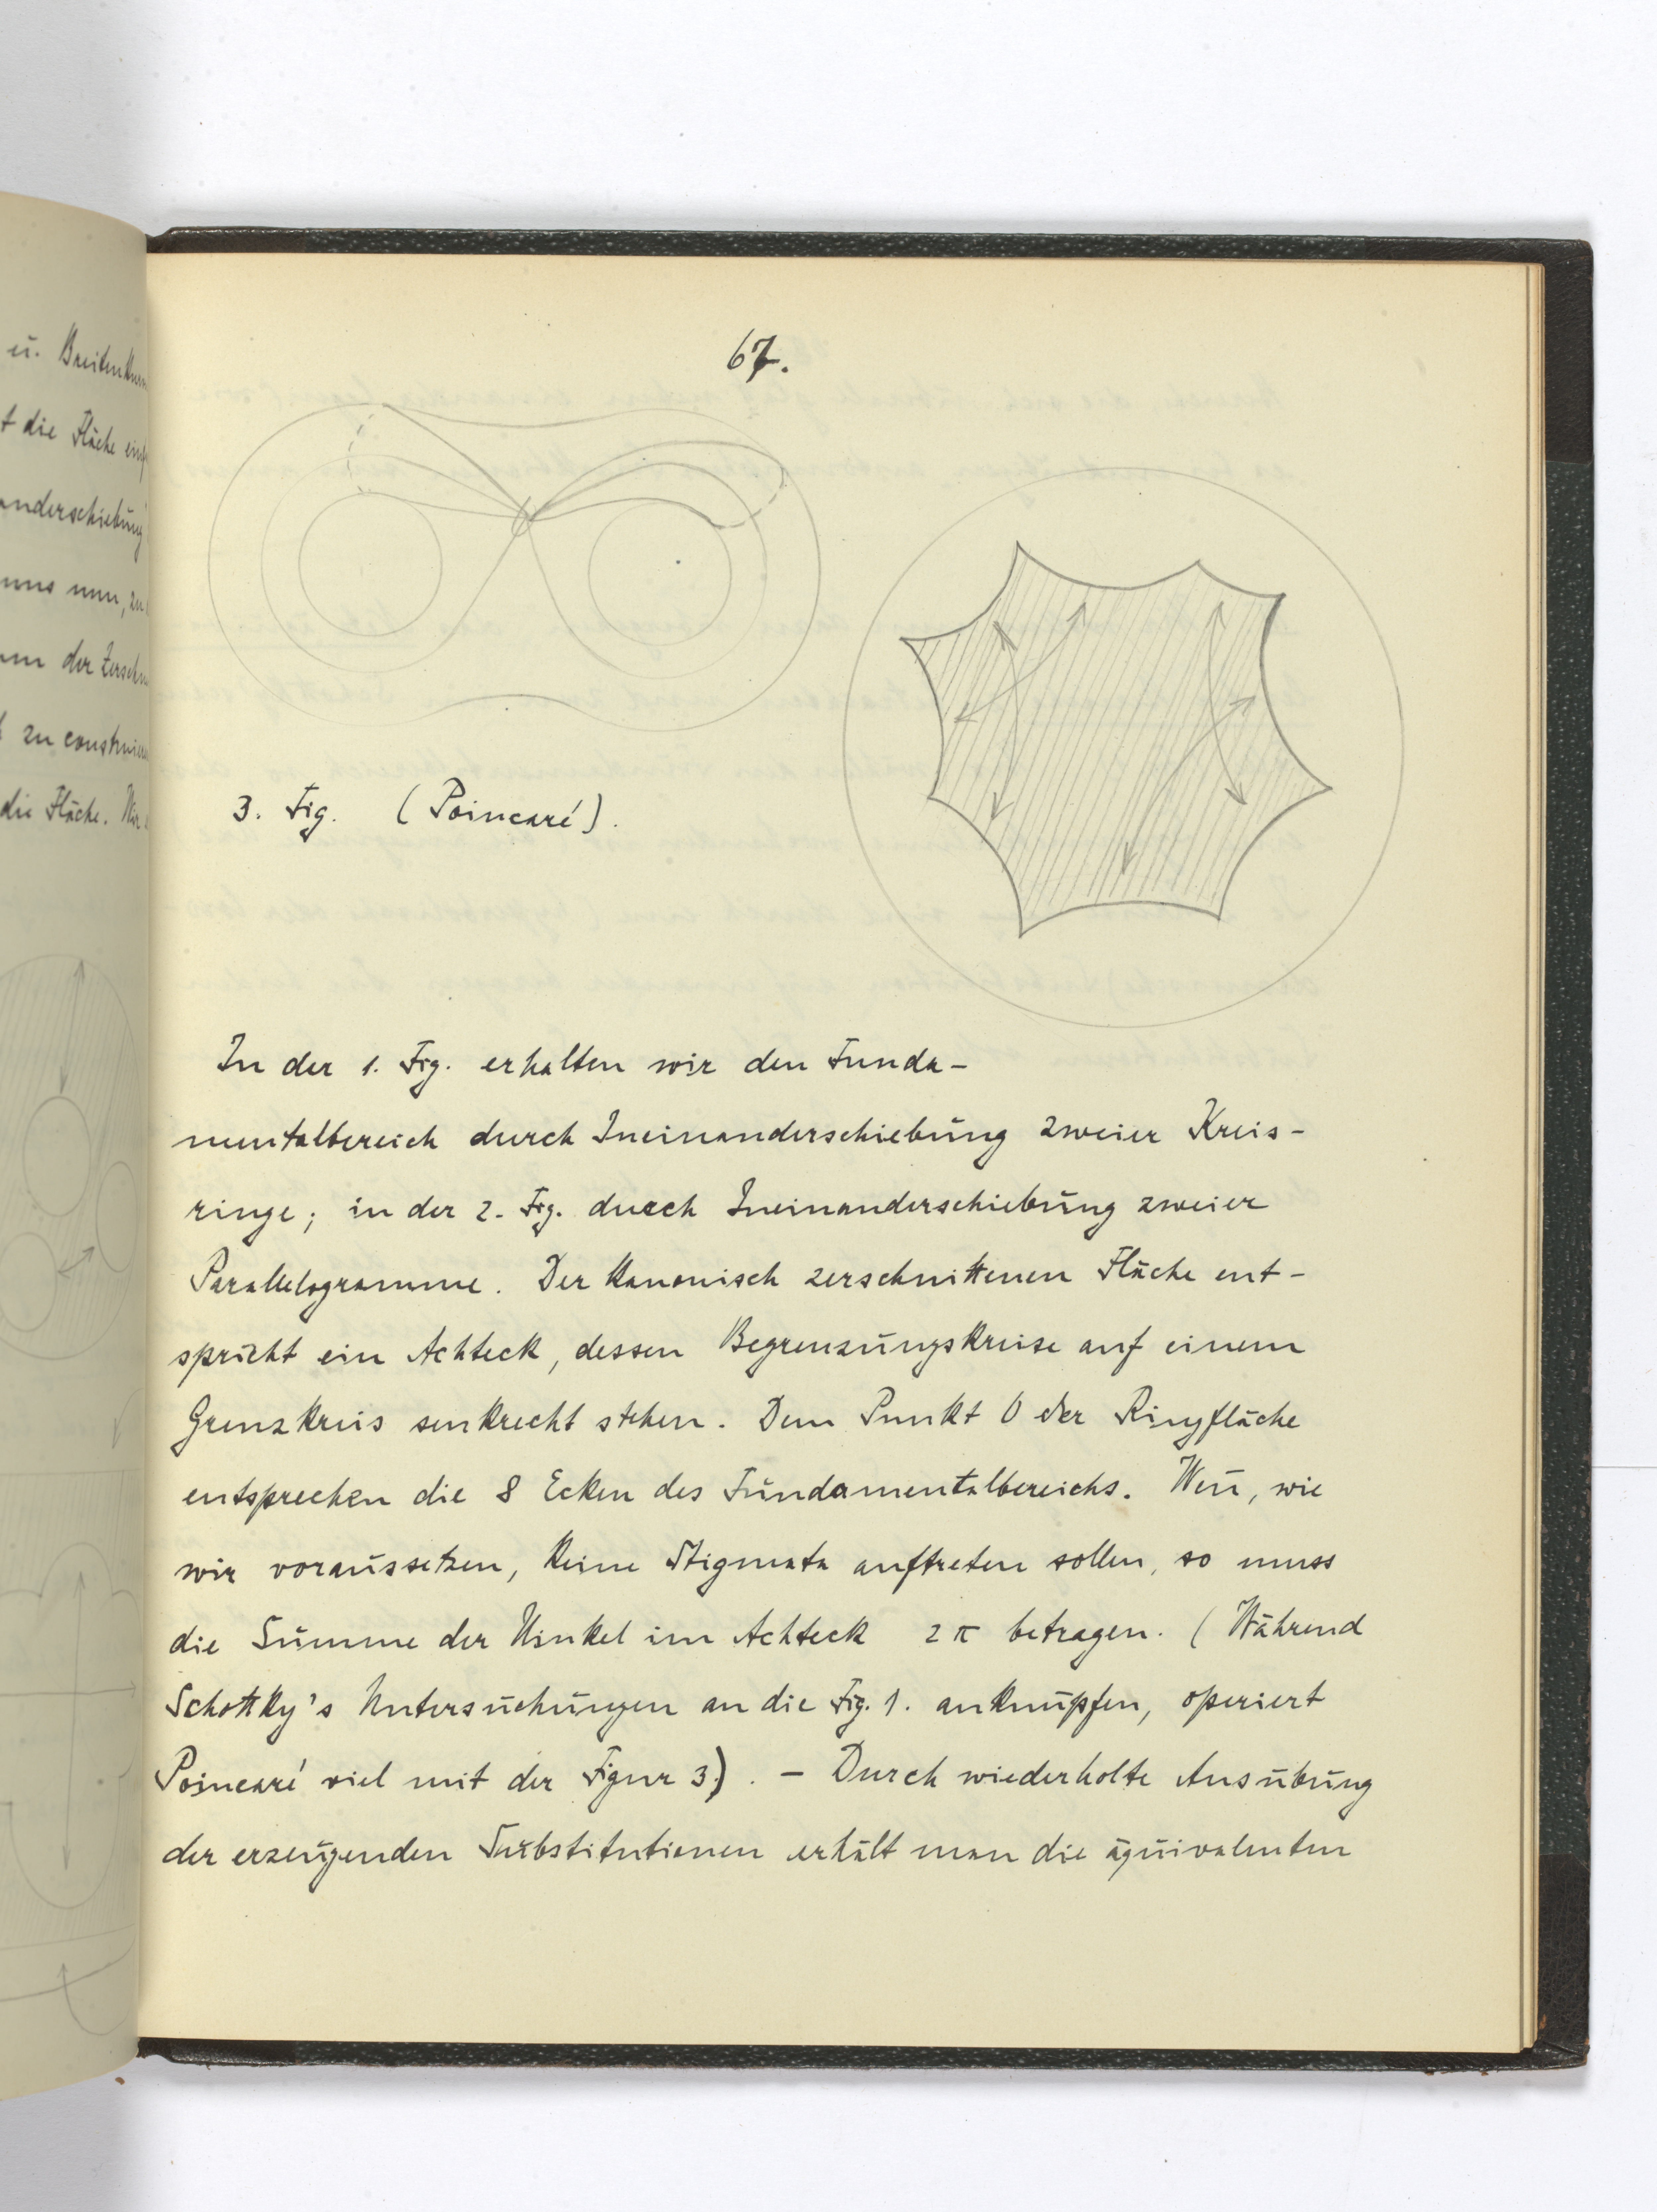 ü. Breiten
t die Fläche
anderschiebung
uns nun, zu
der
zu
die Fläche. Wir
67.
3. Fig. (Poincaré).
In der 1. Fig. erhalten wir den Funda-
mentalbereich durch Ineinanderschiebung zweier Kreis-
ringe; in der 2. Fig. durch Ineinanderschiebung zweier
Parallelogramme. Der kanonisch zerschnittenen Fläche ent-
spricht ein Achteck, dessen Begrenzungskreise auf einem
Grenzkreis senkrecht stehen. Dem Punkt O der Ringfläche
entsprechen die 8 Ecken des Fundamentalbereichs. Weñ, wie
wir voraussetzen, keine Stigmata auftreten sollen, so muss
die Summe der Winkel im Achteck 2π betragen. (Während
Schottky's Untersuchungen an die Fig. 1. anknüpfen, operiert
Poincaré viel mit der Figur 3.). – Durch wiederholte Ausübung
der erzeugenden Substitutionen erhält man die äquivalenten